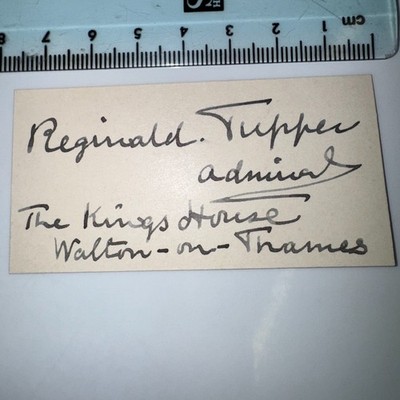 cm
8 7 6 5 4 3 2 1
Reginald. Tupper
Admiral
The Kings House
Walton-on-Thames